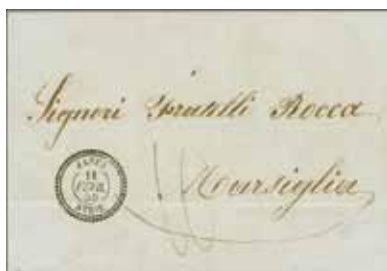 Signori Fratelli Rocca
Marsiglia
11
SYRIE